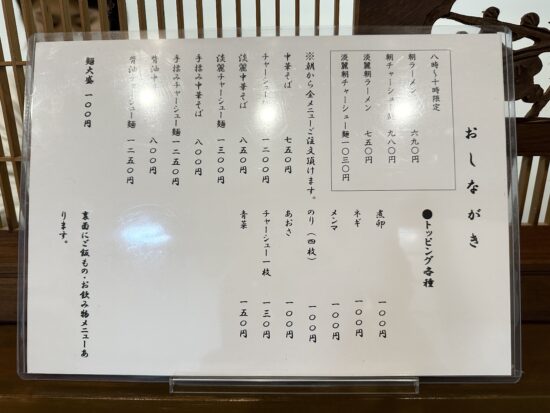 おしながき
八時〜十時限定
朝ラーメン 六九〇円
朝チャーシュー麺 九八〇円
淡麗朝ラーメン 七五〇円
淡麗朝チャーシュー麺 一〇三〇円
※朝から全メニューご注文頂けます。
中華そば 七五〇円
チャーシュー 一二〇〇円
淡麗中華そば 八五〇円
淡麗チャーシュー麺 一三〇〇円
手揉み中華そば 八〇〇円
手揉みチャーシュー麺 一二五〇円
醤油中 八〇〇円
醤油チャーシュー麺 一二五〇円
麺大盛 一〇〇円
●トッピング各種
煮卵 一〇〇円
ネギ 一〇〇円
メンマ 一〇〇円
のり(四枚) 一〇〇円
あおさ 一〇〇円
チャーシュー一枚 一三〇円
青菜 一五〇円
裏面にご飯もの・お飲み物メニューあ
ります。